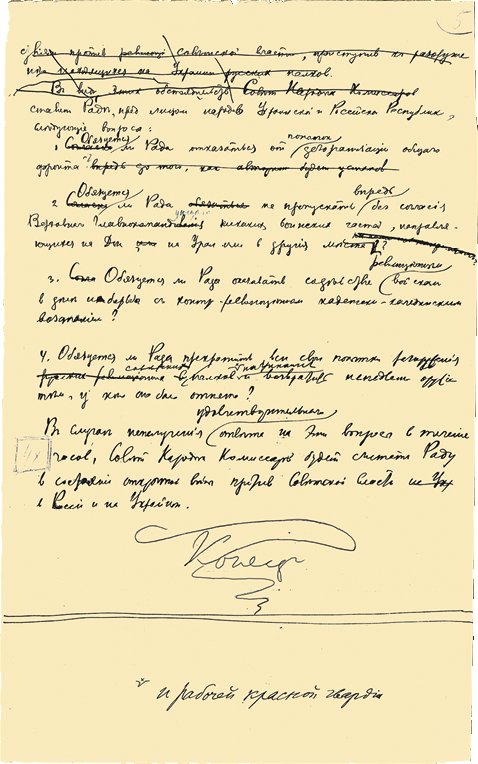 5
против советской власти, приступив к
находящихся на Украине русских полков.
В виду этих обстоятельств Совет Народн Комиссаров
ставит Раде, пред лицом народов Украинской и Российской Республик,
следующие вопросы:
попыток
1. Обязуется ли Рада отказаться от дезорганизации общего
фронта? впредь до того, как
Обязуется впредь
2. Согласна ли Рада не пропускать без согласия
Верховнаго Главнокомандующаго никаких воинских частей, направля-
ющихся на Дон, на Урал или в другия места?
революционным
3. Обязуется ли Рада оказывать содействие войскам
в деле борьбы с контр-революционным кадетски-калединским
возстанием?
4. Обязуется ли Рада прекратить все свои попытки разоружения
советских полков и возвратить немедленно оружие
тем, у кого оно было отнято?
удовлетворительнаго
В случае неполучения ответа на эти вопросы в течение
48 часов, Совет Народн Комиссаров будет считать Раду
в состоянии открытой войны против Советской власти
в России и на Украине.
Конец
и рабочей красной гвардии